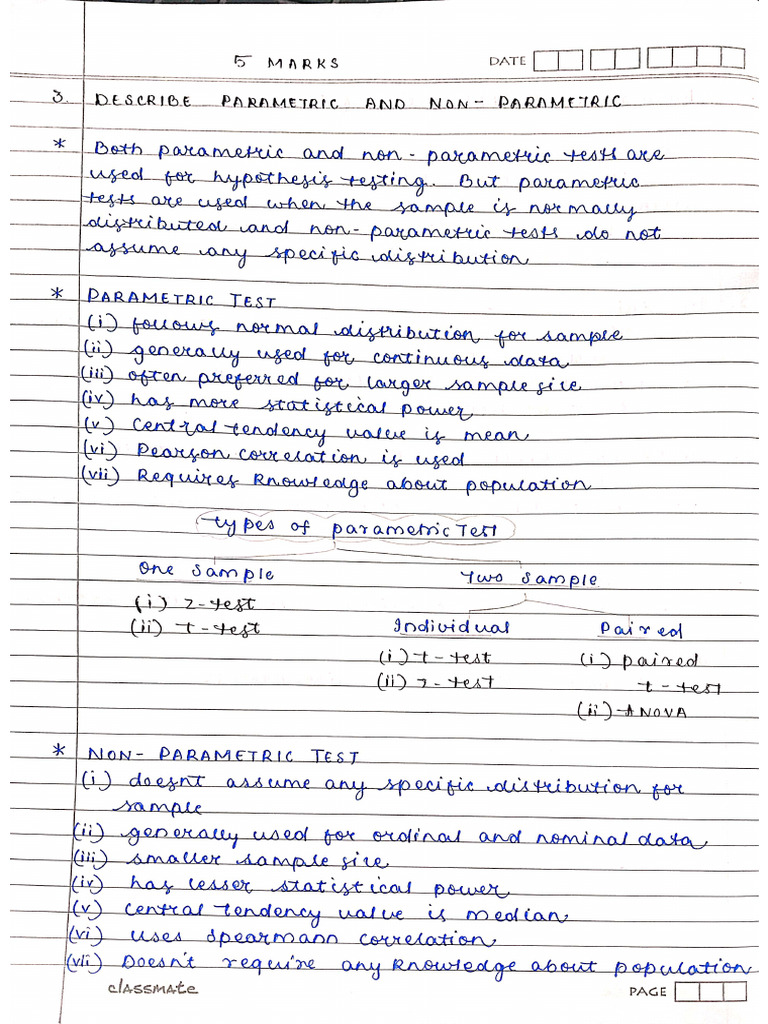 5 MARKS DATE
3. DESCRIBE PARAMETRIC AND NON-PARAMETRIC
* Both parametric and non-parametric tests are
used for hypothesis testing. But parametric
tests are used when the sample is normally
distributed and non-parametric tests do not
assume any specific distribution
* PARAMETRIC TEST
(i) follows normal distribution for sample
(ii) generally used for continuous data
(iii) often preferred for larger sample size
(iv) has more statistical power
(v) Central tendency value is mean
(vi) Pearson correlation is used
(vii) Requires knowledge about population
types of parametric Test
One sample Two sample
(i) z-test
(ii) t-test Individual Paired
(i) t-test (i) paired
(ii) z-test t-test
(ii) ANOVA
* NON-PARAMETRIC TEST
(i) doesnt assume any specific distribution for
sample
(ii) generally used for ordinal and nominal data
(iii) smaller sample size
(iv) has lesser statistical power
(v) central tendency value is median
(vi) uses spearmann correlation
(vii) Doesn't require any knowledge about population
classmate PAGE